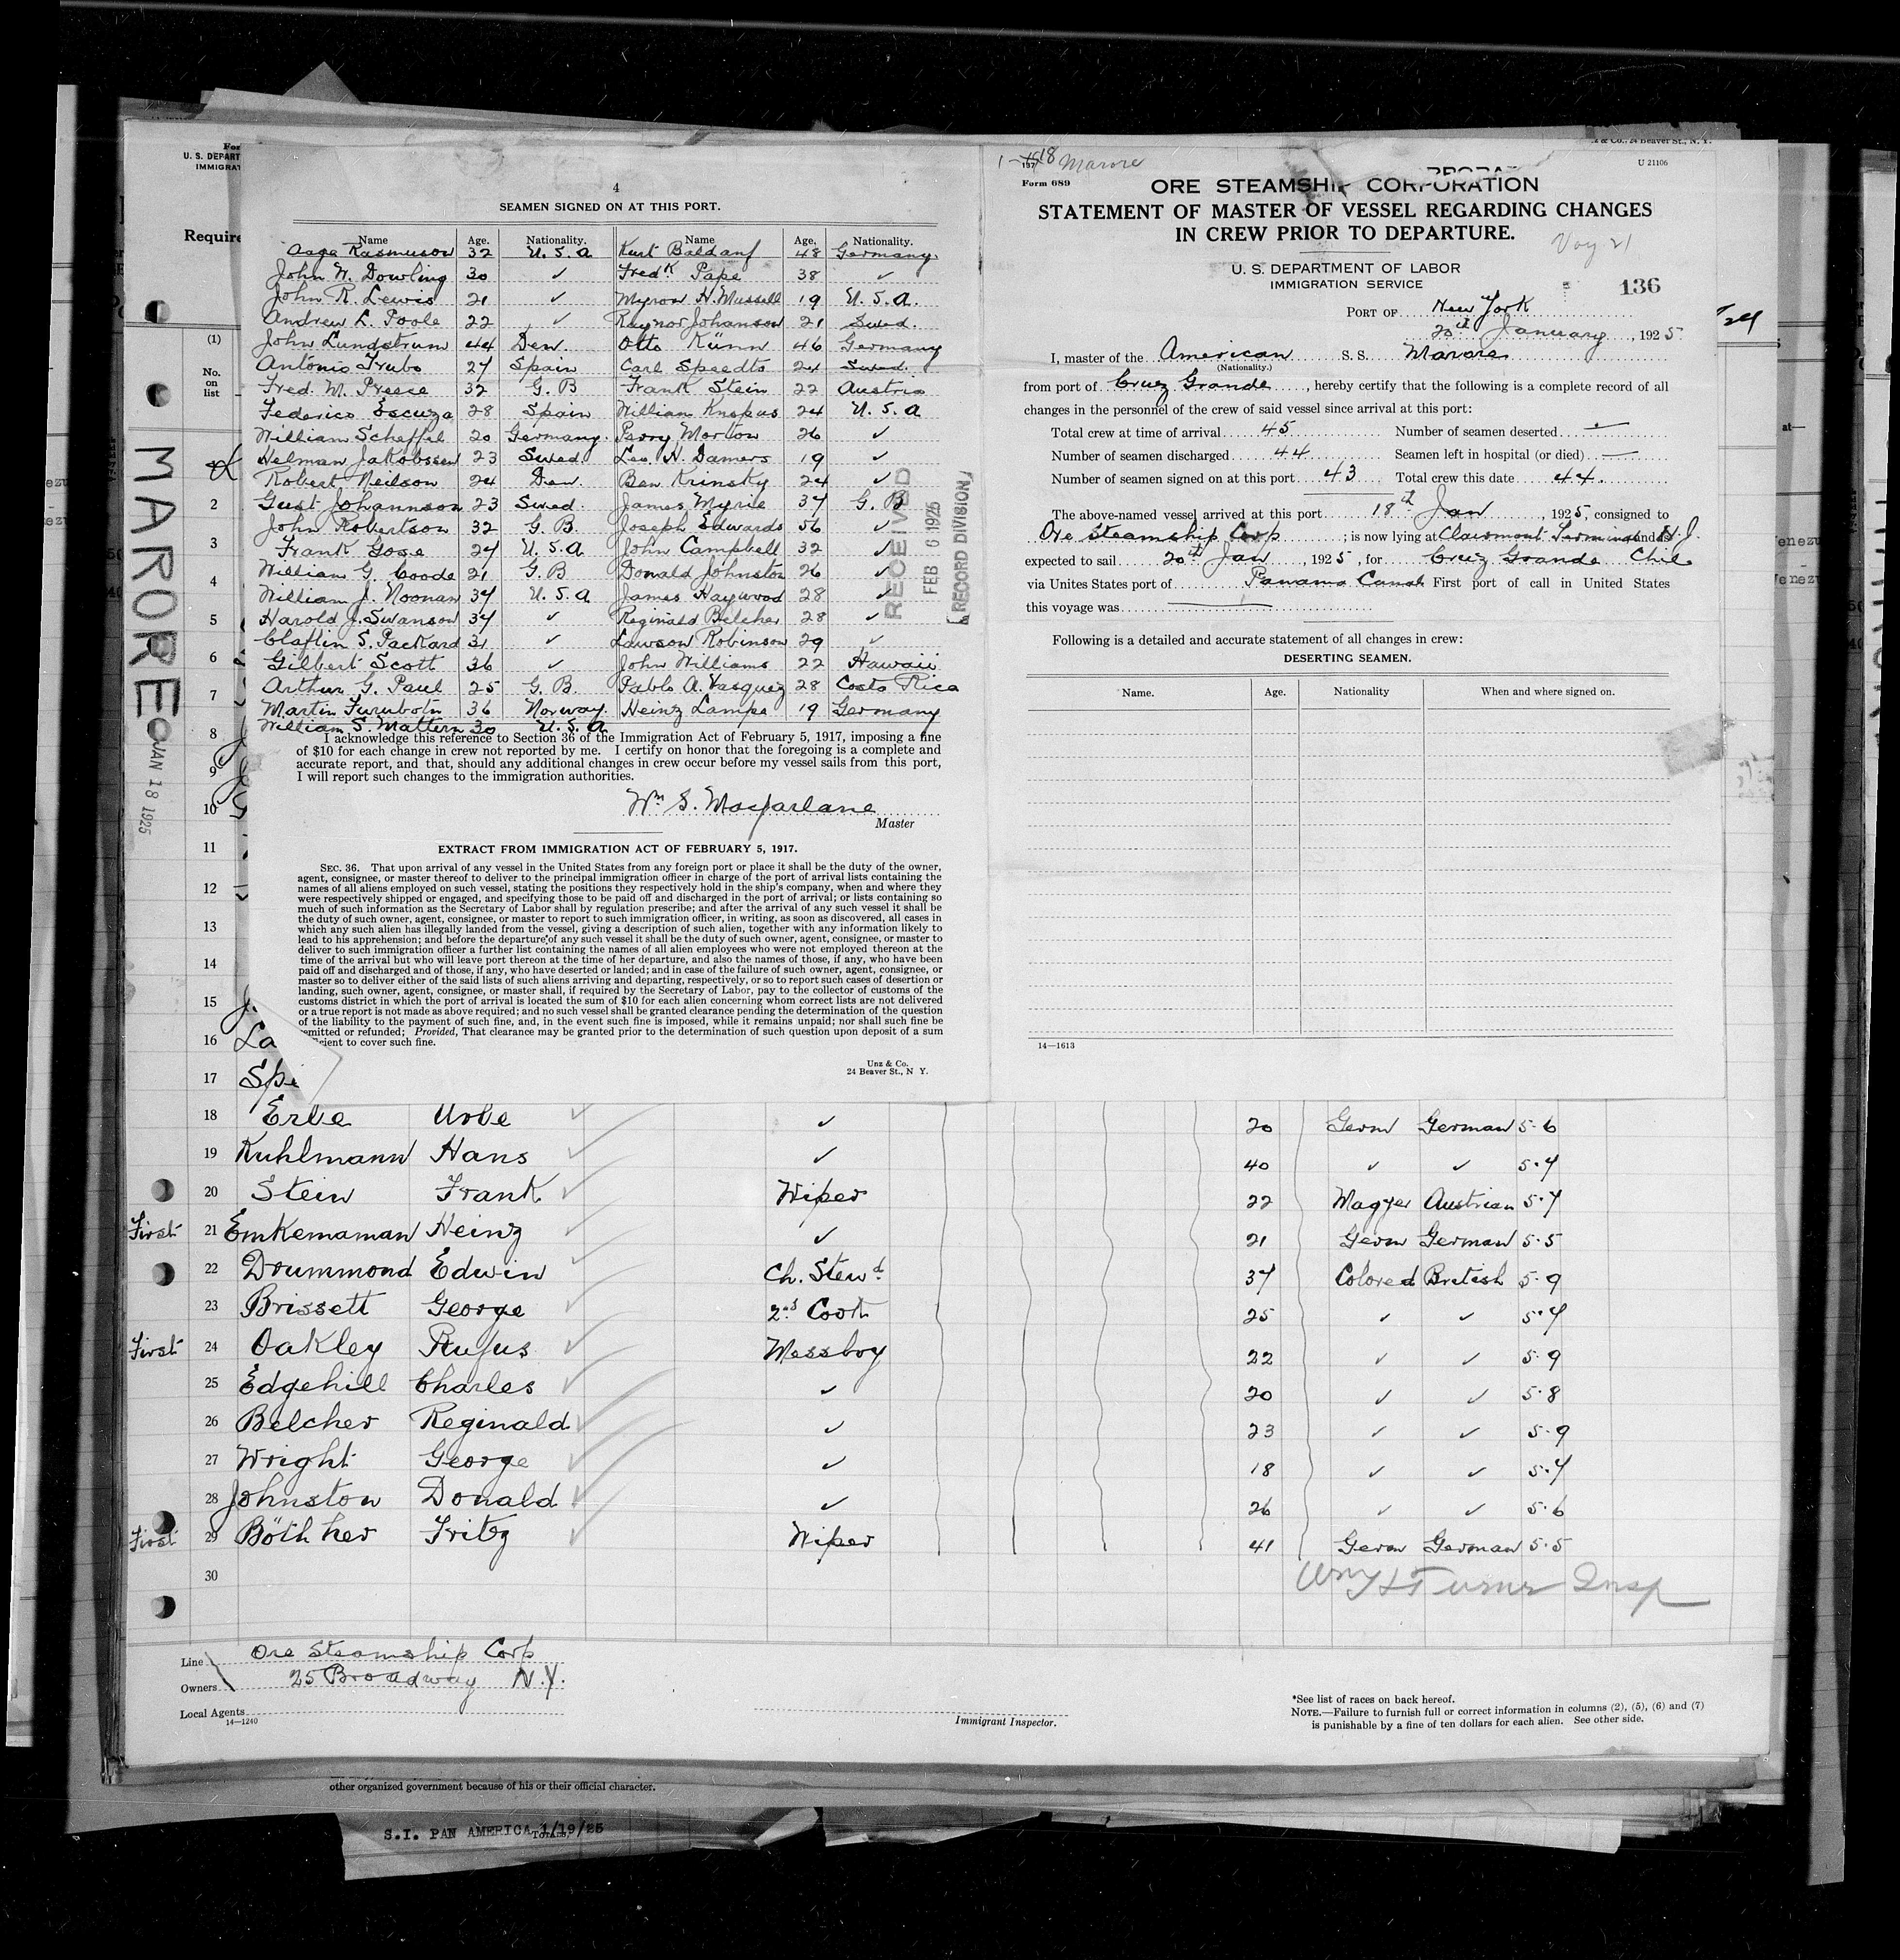 4
SEAMEN SIGNED ON AT THIS PORT.
Name Age. Nationality. Name Age, Nationality.
Aage Rasmuson 32 U. S. a Kurt Baldauf 48 Germany.
John W. Dowling 30 ✓ Fredk Pape 38 ✓
John R. Lewis 21 ✓ Myron H. Mussell 19 U. S. a.
Andrew L. Poole 22 ✓ Raynor Johanson 21 Swed.
John Lundstrum 44 Den. Otto Künn 46 Germany
Antonio Trubo 27 Spain Carl Speedts 24 Swed.
Fred. M. Preece 32 G. B Frank Stein 22 Austria
Federico Escuza 28 Spain William Knopus 24 U. S. a
William Scheffel 20 Germany. Perry Morton 26 ✓
Helman Jakobssen 23 Swed. Leo H. Damers 19 ✓
Robert Neilson 24 Den Ben Krinsky 24 ✓
Gust Johannson 23 Swed. James Myrie 37 G. B
John Robertson 32 G. B. Joseph Edwards 56 ✓
Frank Gose 24 U. S. a John Campbell 32 ✓
William G. Coode 21 G. B Donald Johnston 26 ✓
William J. Noonan 34 U. S. a James Haywood 28 ✓
Harold J. Swanson 34 ✓ Reginald Belcher 28 ✓
Claflin S. Packard 31 ✓ Lawson Robinson 29 ✓
Gilbert Scott 36 ✓ John Williams 22 Hawaii
Arthur G. Paul 25 G. B. Pablo A. Vasquez 28 Costa Rica
Martin Furubotn 36 Norway. Heinz Lampe 19 Germany
William S. Mattern 30 U. S. a
I acknowledge this reference to Section 36 of the Immigration Act of February 5, 1917, imposing a fine
of $10 for each change in crew not reported by me. I certify on honor that the foregoing is a complete and
accurate report, and that, should any additional changes in crew occur before my vessel sails from this port,
I will report such changes to the immigration authorities.
Wm S. Macfarlane
Master
EXTRACT FROM IMMIGRATION ACT OF FEBRUARY 5, 1917.
SEC. 36. That upon arrival of any vessel in the United States from any foreign port or place it shall be the duty of the owner,
agent, consignee, or master thereof to deliver to the principal immigration officer in charge of the port of arrival lists containing the
names of all aliens employed on such vessel, stating the positions they respectively hold in the ship's company, when and where they
were respectively shipped or engaged, and specifying those to be paid off and discharged in the port of arrival; or lists containing so
much of such information as the Secretary of Labor shall by regulation prescribe; and after the arrival of any such vessel it shall be
the duty of such owner, agent, consignee, or master to report to such immigration officer, in writing, as soon as discovered, all cases in
which any such alien has illegally landed from the vessel, giving a description of such alien, together with any information likely to
lead to his apprehension; and before the departure of any such vessel it shall be the duty of such owner, agent, consignee, or master to
deliver to such immigration officer a further list containing the names of all alien employees who were not employed thereon at the
time of the arrival but who will leave port thereon at the time of her departure, and also the names of those, if any, who have been
paid off and discharged and of those, if any, who have deserted or landed; and in case of the failure of such owner, agent, consignee, or
master so to deliver either of the said lists of such aliens arriving and departing, respectively, or so to report such cases of desertion or
landing, such owner, agent, consignee, or master shall, if required by the Secretary of Labor, pay to the collector of customs of the
customs district in which the port of arrival is located the sum of $10 for each alien concerning whom correct lists are not delivered
or a true report is not made as above required; and no such vessel shall be granted clearance pending the determination of the question
of the liability to the payment of such fine, and, in the event such fine is imposed, while it remains unpaid; nor shall such fine be
emitted or refunded; Provided, That clearance may be granted prior to the determination of such question upon deposit of a sum
cient to cover such fine.
Unz & Co.
24 Beaver St., N Y.
RECEIVED
FEB 6 1925
RECORD DIVISION
1-18 Marore
Form 689
z & Co., 24 Beaver St., N. Y.
U 21106
ORE STEAMSHIP CORPORATION
STATEMENT OF MASTER OF VESSEL REGARDING CHANGES
IN CREW PRIOR TO DEPARTURE.
Voy 21
U. S. DEPARTMENT OF LABOR
IMMIGRATION SERVICE
136
PORT OF New York
20th January, 1925
I, master of the American S. S. Marore
(Nationality.)
from port of Cruz Grande, hereby certify that the following is a complete record of all
changes in the personnel of the crew of said vessel since arrival at this port:
Total crew at time of arrival 45 Number of seamen deserted —
Number of seamen discharged 44 Seamen left in hospital (or died) —
Number of seamen signed on at this port 43 Total crew this date 44.
The above-named vessel arrived at this port 18th Jan, 1925, consigned to
Ore Steamship Corp; is now lying at Clairmont Terminal and is N. J.
expected to sail 20th Jan, 1925, for Cruz Grande Chile
via Unites States port of Panama Canal First port of call in United States
this voyage was —
Following is a detailed and accurate statement of all changes in crew:
DESERTING SEAMEN.
Name. Age. Nationality When and where signed on.
14—1613
For
U. S. DEPART
IMMIGRAT
Require
(1)
No.
on
list
MARORE
JAN 18 1925
2
3
4
5
6
7
8
9
10
11
12
13
14
15 J.
16 La
17 Spi
18 Erbe Urbe ✓ ✓ 20 Germ German 5-6
19 Kuhlmann Hans ✓ ✓ 40 ✓ ✓ 5-7
20 Stein Frank ✓ Wiper 22 Magyer Austrian 5-7
First 21 Emkemaman Heinz ✓ 21 Germ German 5-5
22 Drummond Edwin ✓ Ch. Stewd. 37 Colored British 5-9
23 Brissett George ✓ 2nd Cook 25 ✓ ✓ 5-7
First 24 Oakley Rufus ✓ Messboy 22 ✓ ✓ 5-9
25 Edgehill Charles ✓ ✓ 20 ✓ ✓ 5-8
26 Belcher Reginald ✓ ✓ 23 ✓ ✓ 5-9
27 Wright George ✓ ✓ 18 ✓ ✓ 5-7
28 Johnston Donald ✓ ✓ 26 ✓ ✓ 5-6
First 29 Böthher Fritz ✓ Wiper 41 Germ German 5-5
30
Turner Insp
Line Ore Steamship Corp
Owners 25 Broadway N.Y.
Local Agents
14—1240
Immigrant Inspector.
*See list of races on back hereof.
NOTE.—Failure to furnish full or correct information in columns (2), (5), (6) and (7)
is punishable by a fine of ten dollars for each alien. See other side.
other organized government because of his or their official character.
S.I. PAN AMERICA 1/19/25